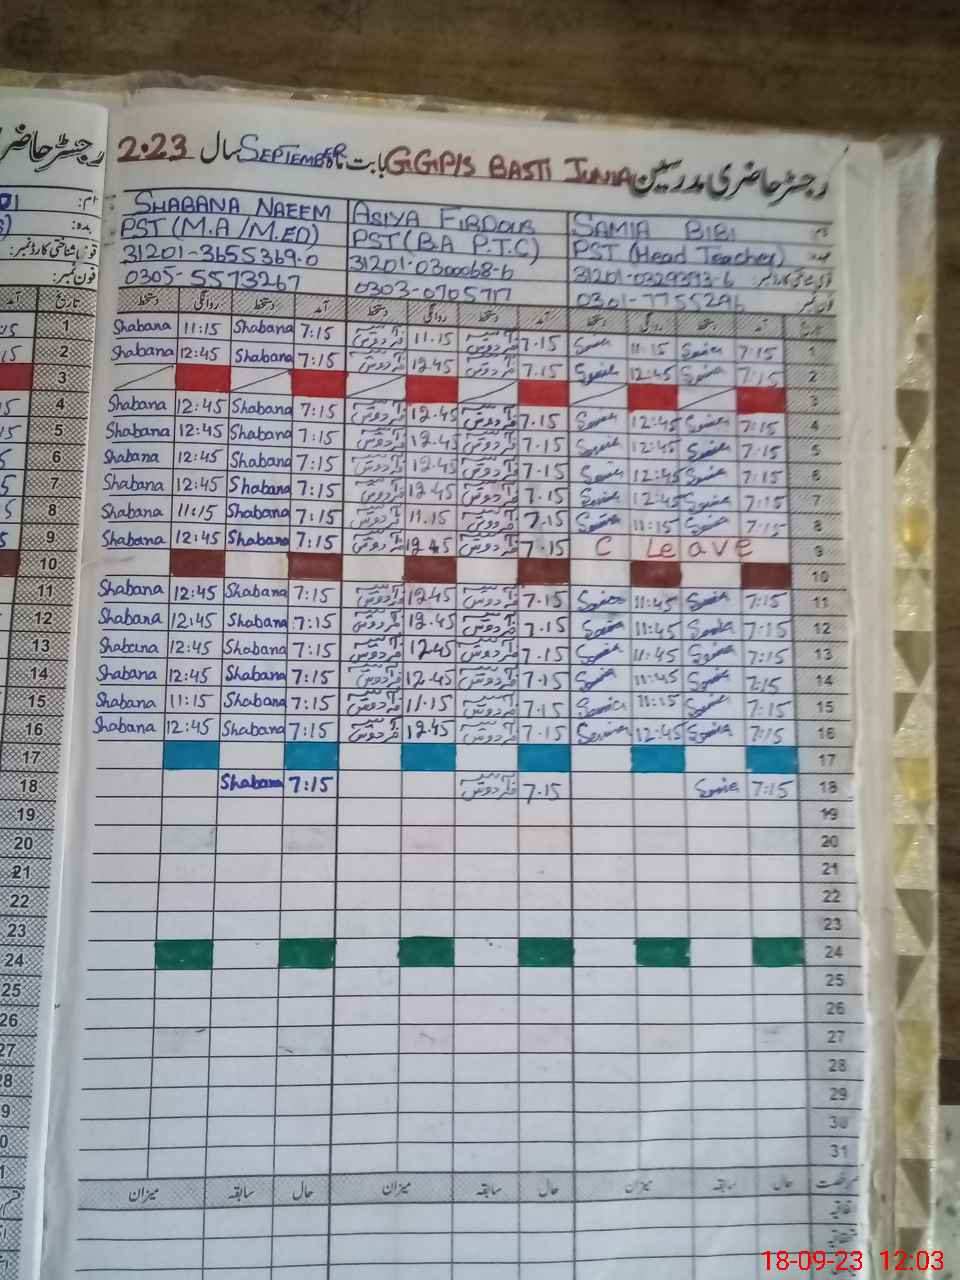 رجسٹر حاضری مدرسین GGPS BASTI JUNIA بابت ماہ SEPTEMBER سال 2023
SHABANA NAEEM ASIYA FIRDOUS SAMIA BIBI نام
PST (M.A/M.ED) PST (B.A P.T.C) PST (Head Teacher) عہدہ
31201-3655369-0 31201-0300068-6
0305-5573267 0303-0705717 0301-7755296 فون نمبر
دستخط روانگی دستخط آمد دستخط روانگی دستخط آمد دستخط روانگی دستخط آمد تاریخ
1 Shabana 11:15 Shabana 7:15 فردوس 11.15 فردوس 7.15 Samia 11:15 Samia 7:15 1
2 Shabana 12:45 Shabana 7:15 فردوس 12.45 فردوس 7.15 Samia 12:45 Samia 7:15 2
3 3
4 Shabana 12:45 Shabana 7:15 فردوس 12.45 فردوس 7.15 Samia 12:45 Samia 7:15 4
5 Shabana 12:45 Shabana 7:15 فردوس 12.45 فردوس 7.15 Samia 12:45 Samia 7:15 5
6 Shabana 12:45 Shabana 7:15 فردوس 12.45 فردوس 7.15 Samia 12:45 Samia 7:15 6
7 Shabana 12:45 Shabana 7:15 فردوس 12.45 فردوس 7.15 Samia 12:45 Samia 7:15 7
8 Shabana 11:15 Shabana 7:15 فردوس 11.15 فردوس 7.15 Samia 11:15 Samia 7:15 8
9 Shabana 12:45 Shabana 7:15 فردوس 12.45 فردوس 7.15 C Leave 9
10 10
11 Shabana 12:45 Shabana 7:15 فردوس 12.45 فردوس 7.15 Samia 11:45 Samia 7:15 11
12 Shabana 12:45 Shabana 7:15 فردوس 12.45 فردوس 7.15 Samia 11:45 Samia 7:15 12
13 Shabana 12:45 Shabana 7:15 فردوس 12.45 فردوس 7.15 Samia 11:45 Samia 7:15 13
14 Shabana 12:45 Shabana 7:15 فردوس 12.45 فردوس 7.15 Samia 11:45 Samia 7:15 14
15 Shabana 11:15 Shabana 7:15 فردوس 11.15 فردوس 7.15 Samia 11:15 Samia 7:15 15
16 Shabana 12:45 Shabana 7:15 فردوس 12.45 فردوس 7.15 Samia 12:45 Samia 7:15 16
17 17
18 Shabana 7:15 فردوس 7.15 Samia 7:15 18
19 19
20 20
21 21
22 22
23 23
24 24
25 25
26 26
27 27
28 28
29 29
30
31
میزان سابقہ حال میزان سابقہ حال میزان سابقہ حال
18-09-23 12:03